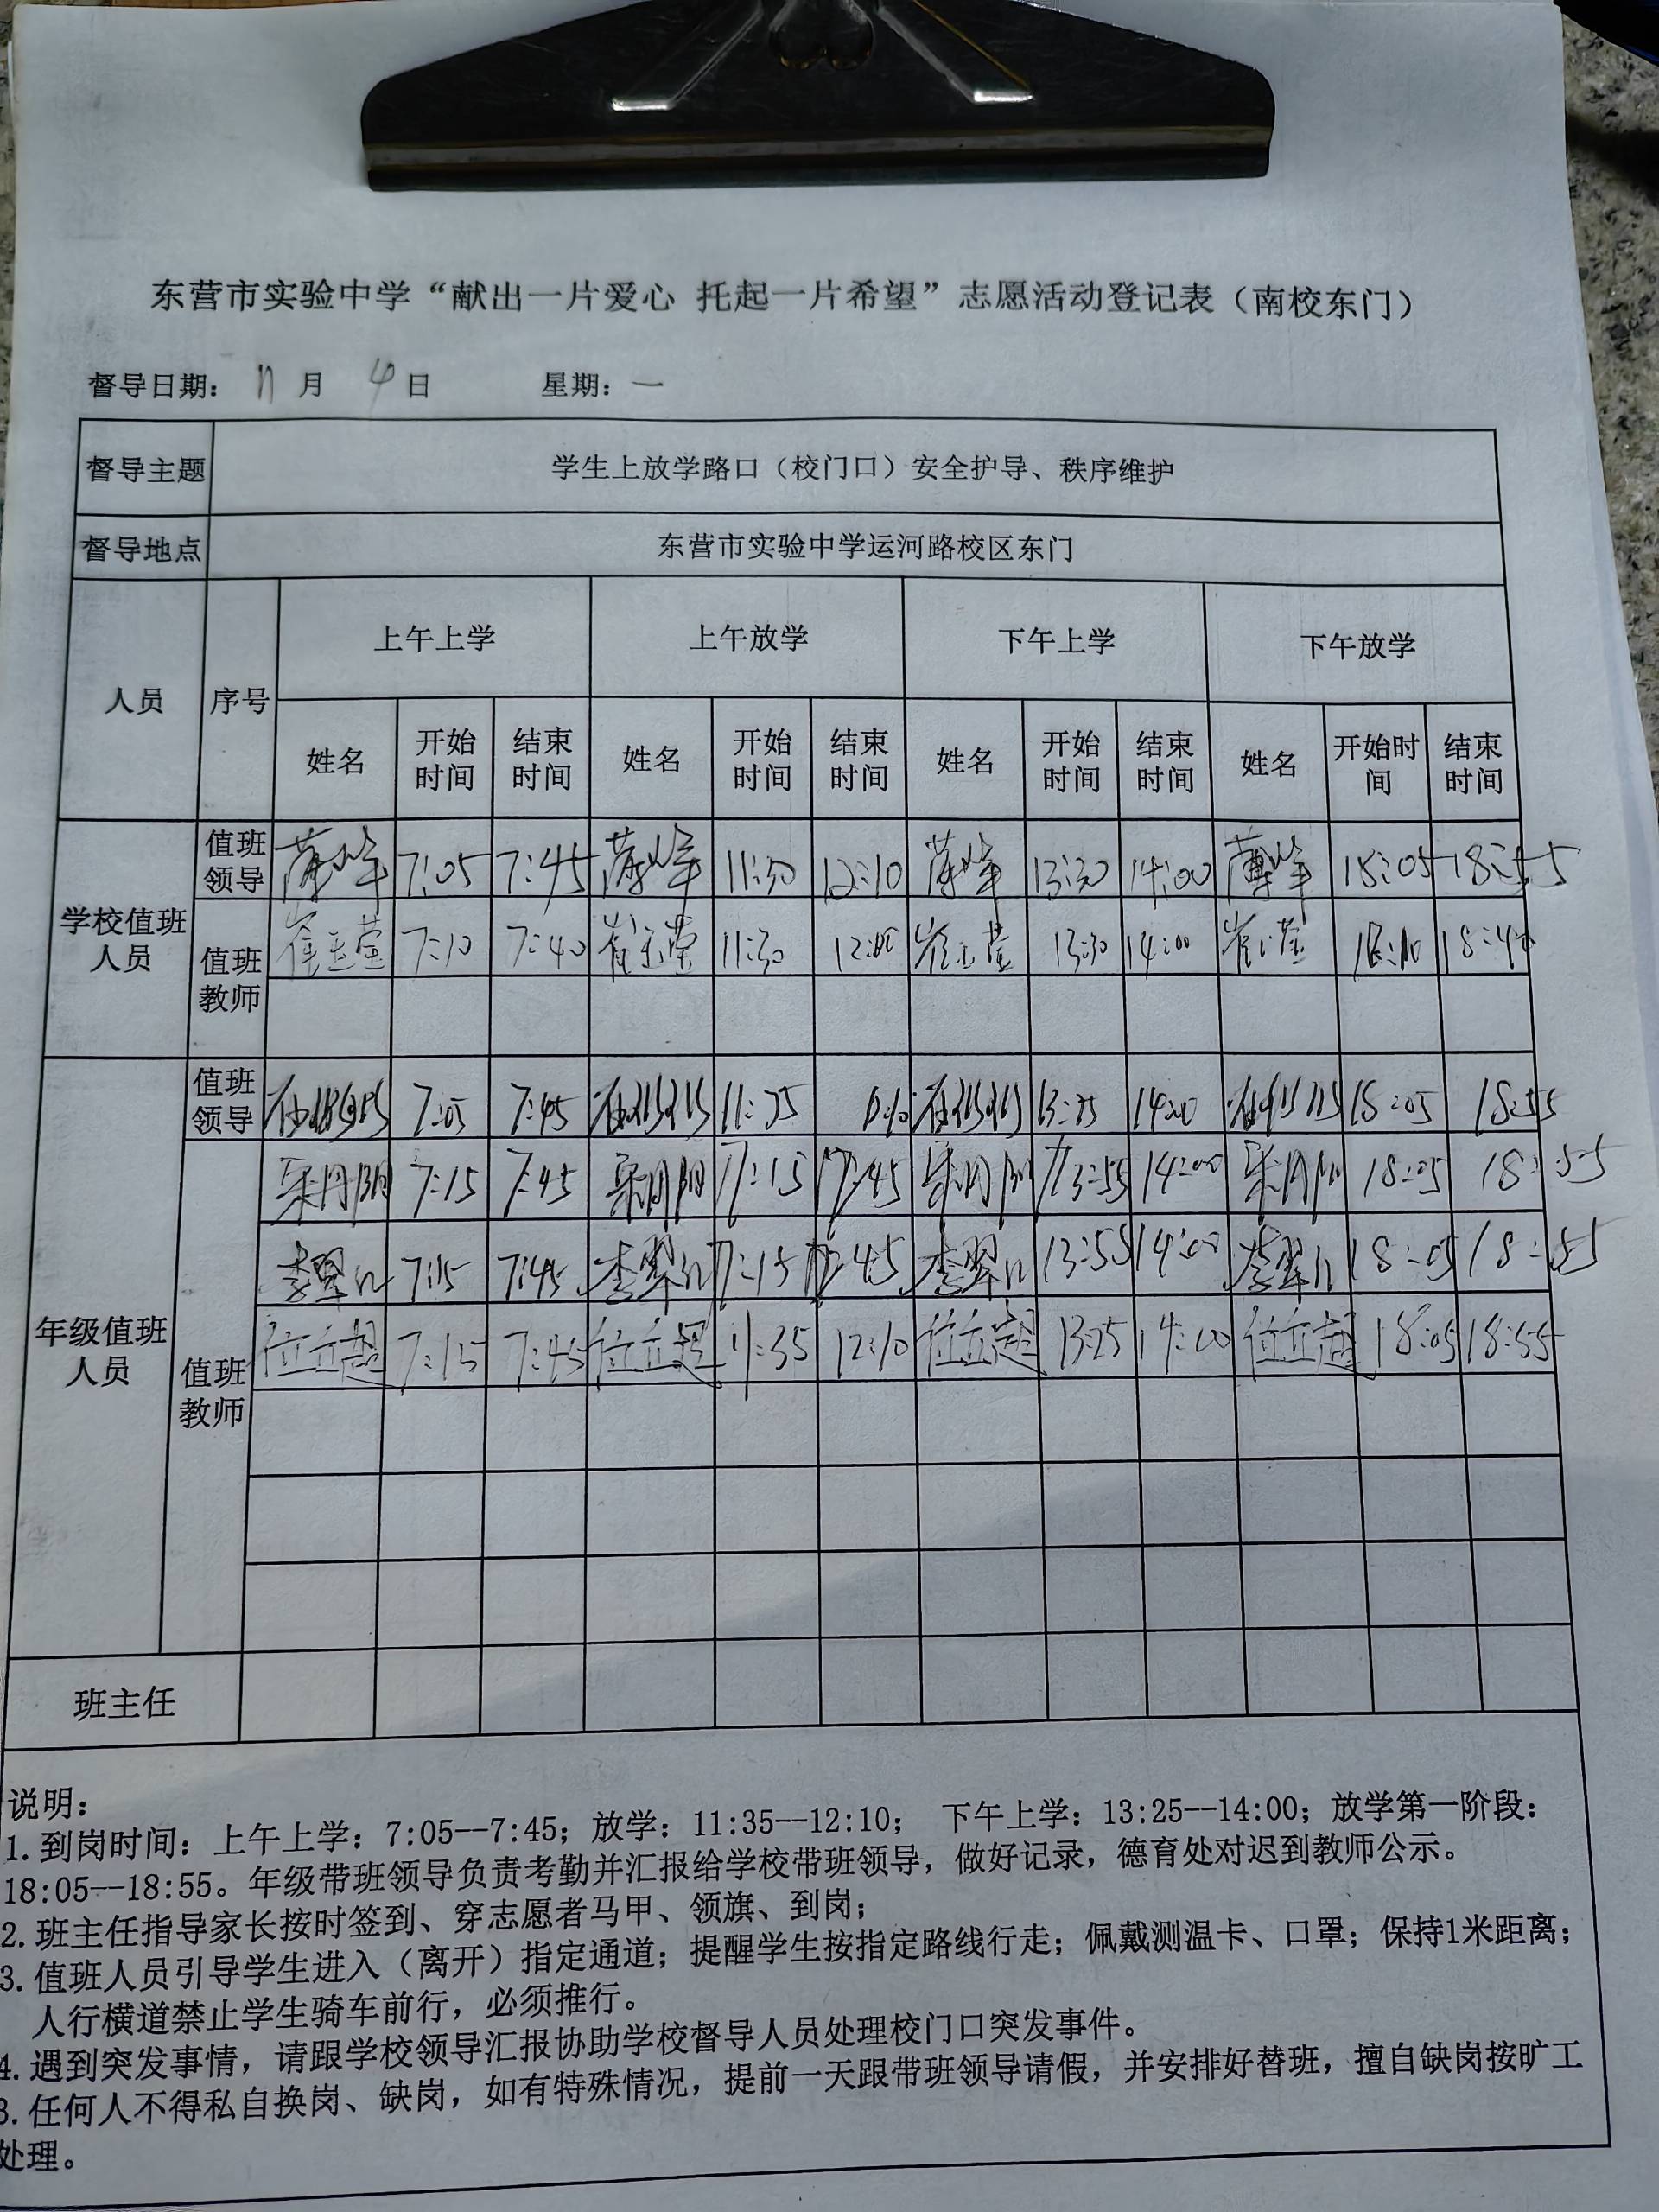 东营市实验中学“献出一片爱心 托起一片希望”志愿活动登记表（南校东门）
督导日期： 11 月 4 日 星期：一
督导主题 学生上放学路口（校门口）安全护导、秩序维护
督导地点 东营市实验中学运河路校区东门
人员 序号 上午上学 上午放学 下午上学 下午放学
姓名 开始时间 结束时间 姓名 开始时间 结束时间 姓名 开始时间 结束时间 姓名 开始时间 结束时间
学校值班人员
值班领导 薄峰 7:05 7:45 薄峰 11:30 12:10 薄峰 13:30 14:00 薄峰 18:05 18:55
值班教师 崔玉莹 7:10 7:40 崔玉莹 11:30 12:00 崔玉莹 13:30 14:00 崔玉莹 18:10 18:40
年级值班人员
值班领导 7:05 7:45 11:35 13:25 14:00 18:05 18:55
值班教师
7:15 7:45 14:00 18:05 18:55
7:15 7:45 13:55 14:00 18:05 18:55
位立超 7:15 7:45 位立超 11:35 12:10 位立超 13:25 14:00 位立超 18:05 18:55
班主任
说明：
1.到岗时间：上午上学：7:05--7:45；放学：11:35--12:10； 下午上学：13:25--14:00；放学第一阶段：
18:05--18:55。年级带班领导负责考勤并汇报给学校带班领导，做好记录，德育处对迟到教师公示。
2.班主任指导家长按时签到、穿志愿者马甲、领旗、到岗；
3.值班人员引导学生进入（离开）指定通道；提醒学生按指定路线行走；佩戴测温卡、口罩；保持1米距离；
人行横道禁止学生骑车前行，必须推行。
4.遇到突发事情，请跟学校领导汇报协助学校督导人员处理校门口突发事件。
3.任何人不得私自换岗、缺岗，如有特殊情况，提前一天跟带班领导请假，并安排好替班，擅自缺岗按旷工
处理。